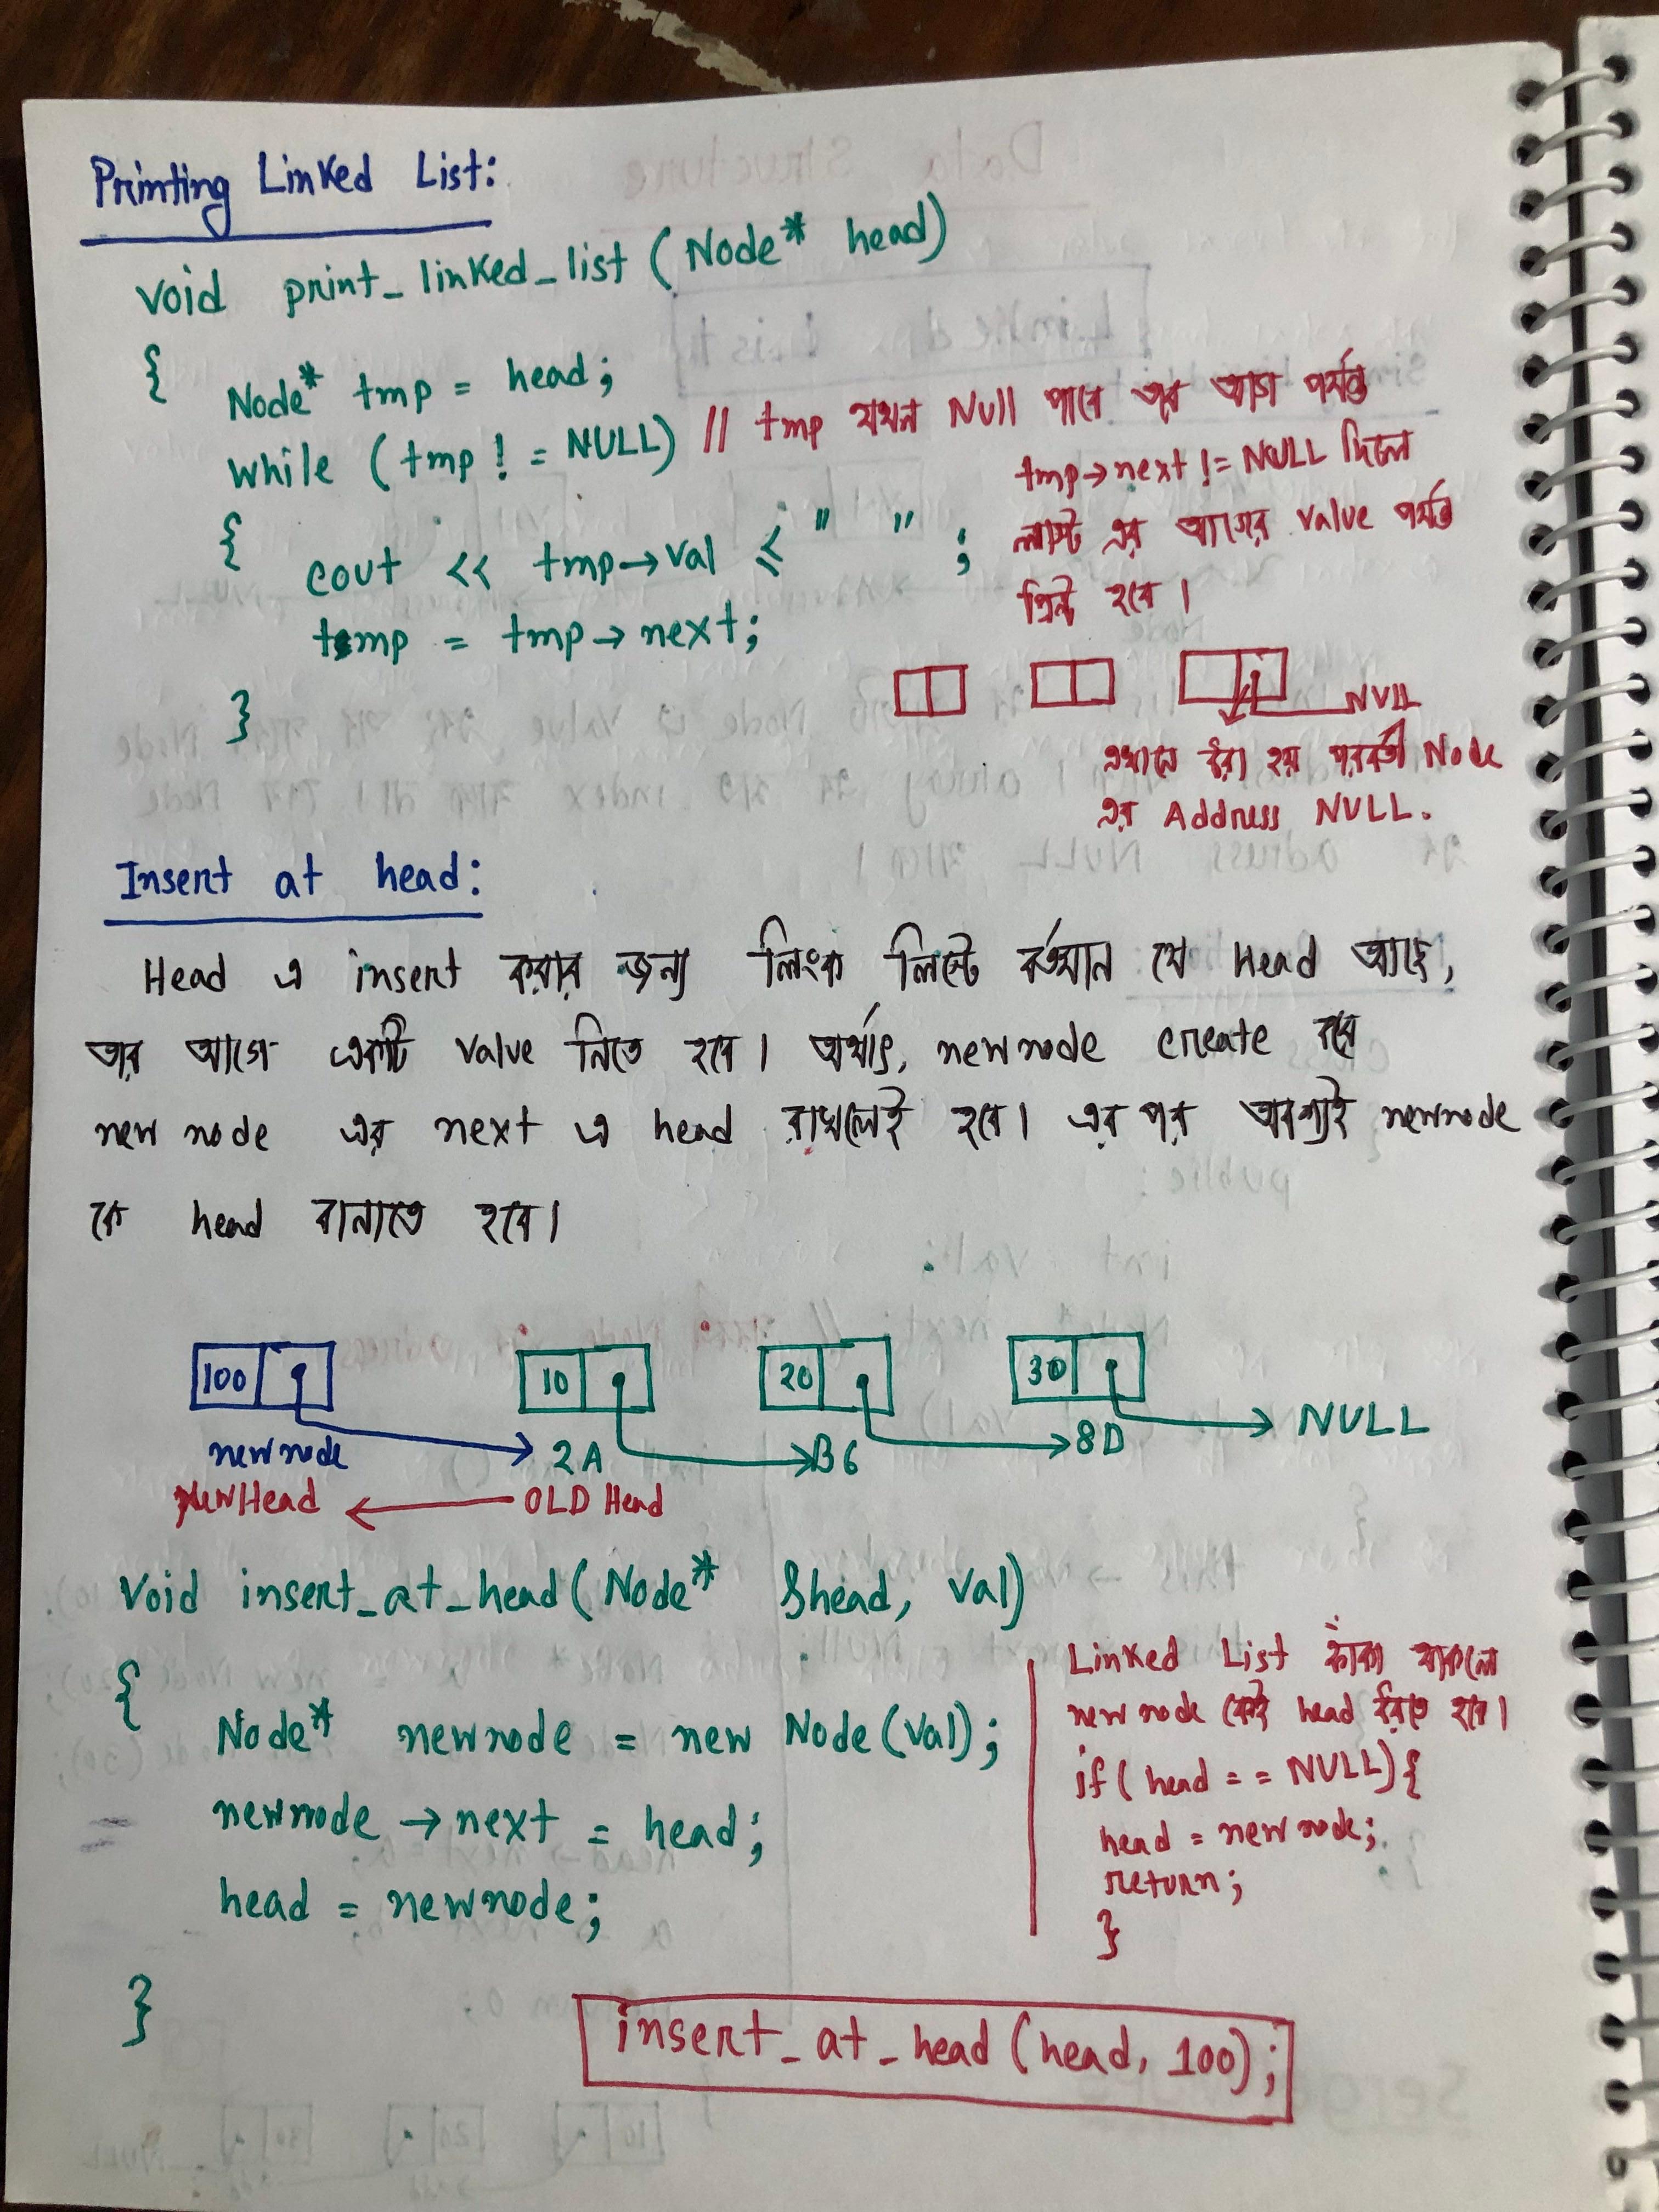 Printing Linked List:
void print_linked_list (Node* head)
{ Node* tmp = head;
while (tmp != NULL) // tmp যখন Null পাবে তার আগ পর্যন্ত
tmp→next != NULL দিলে
লাস্ট এর আগের value পর্যন্ত
প্রিন্ট হবে।
{ cout << tmp→val << " " ;
tmp = tmp→next;
}
NULL
এখানে ধরা হয় পরবর্তী Node
এর Address NULL.
Insert at head:
Head এ insert করার জন্য লিংক লিস্টে বর্তমান যে Head আছে,
তার আগে একটি value নিতে হবে। অর্থাৎ, newnode create করে
new node এর next এ head রাখলেই হবে। এর পর অবশ্যই newnode
কে head বানাতে হবে।
100 10 20 30
NULL
newnode 2A B6 8D
NewHead OLD Head
void insert_at_head(Node* &head, val)
{
Node* newnode = new Node(val);
newnode → next = head;
head = newnode;
}
Linked List ফাঁকা থাকলে
new node কেই head ধরতে হবে।
if ( head == NULL) {
head = newnode;
return;
}
insert_at_head (head, 100);